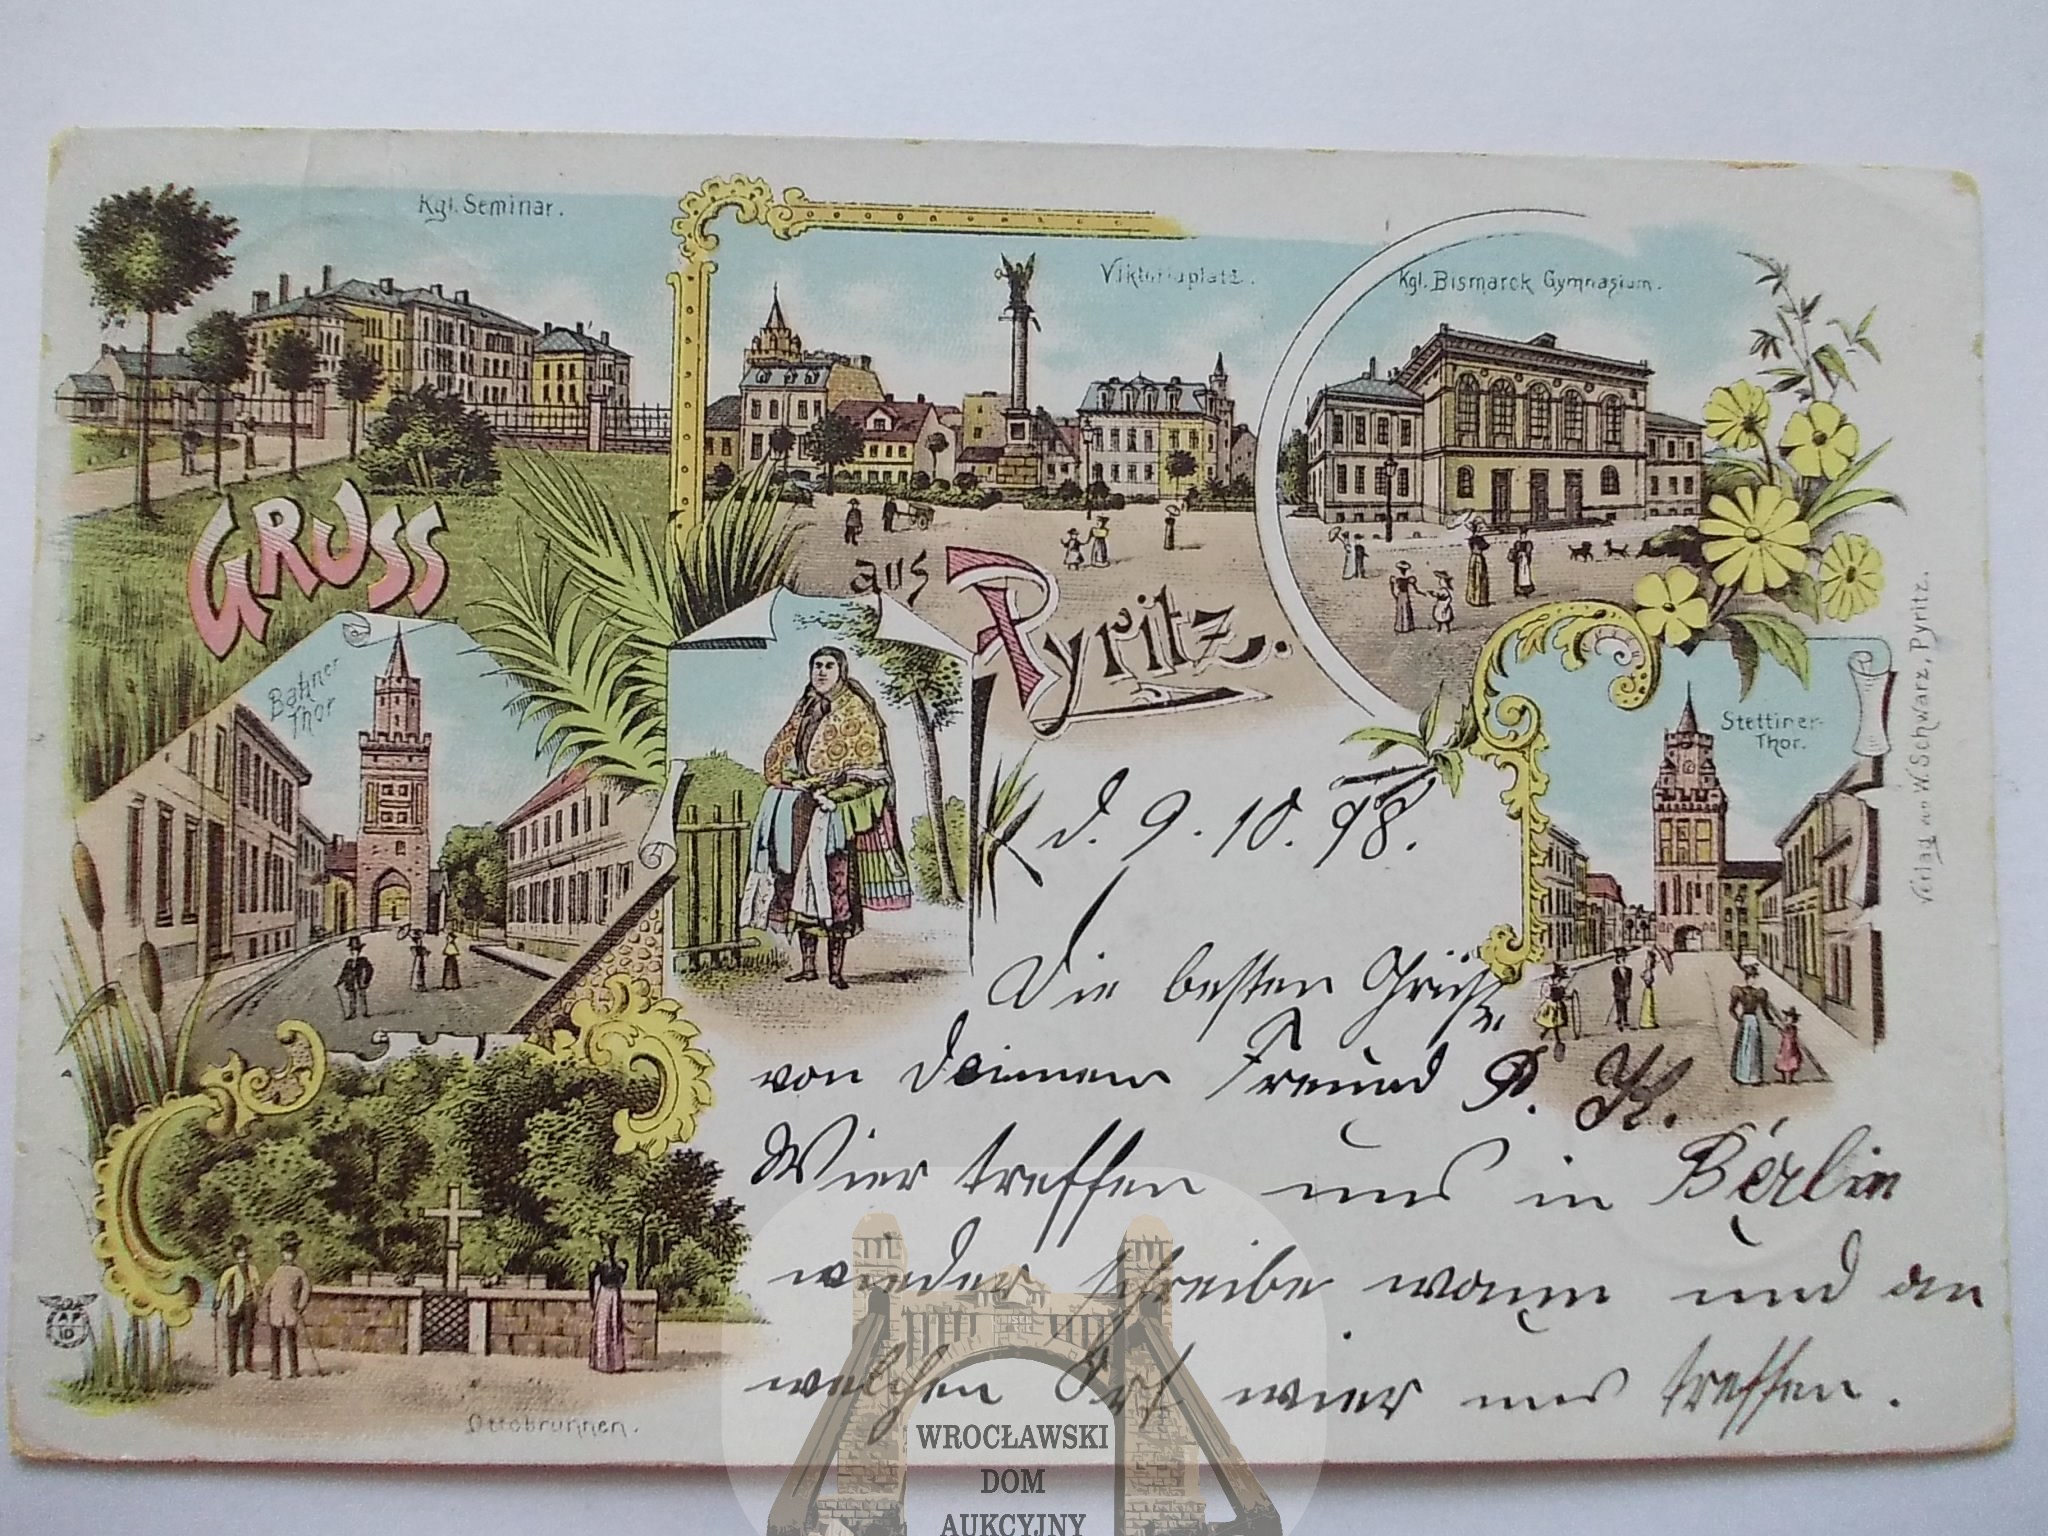 Kgl. Seminar.
Viktoriaplatz.
Kgl. Bismarck Gymnasium.
GRUSS
aus Pyritz.
Bahner
Thor
Stettiner-
Thor.
Verlag von W. Schwarz, Pyritz.
d. 9. 10. 98.
Die besten Grüße
von deinem Freund P. K.
Wier treffen uns in Berlin
wieder schreibe wann und an
welchen Ort wier uns treffen.
Ottobrunnen.
WROCŁAWSKI
DOM
AUKCYJNY